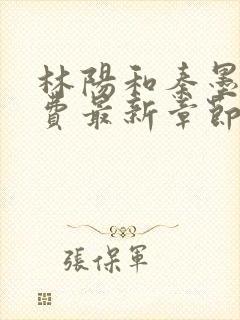 林陽和秦墨
費最新章節
張保軍